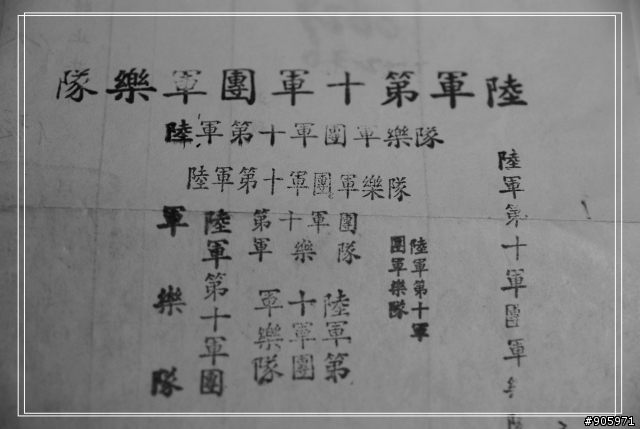 陸軍第十軍團軍樂隊
陸軍第十軍團軍樂隊
陸軍第十軍團軍樂隊
陸軍第十軍團軍
陸軍第十軍
團軍樂隊
第十軍團
軍樂隊
陸軍第
十軍團
軍樂隊
陸軍第十軍團
軍樂隊
#905971